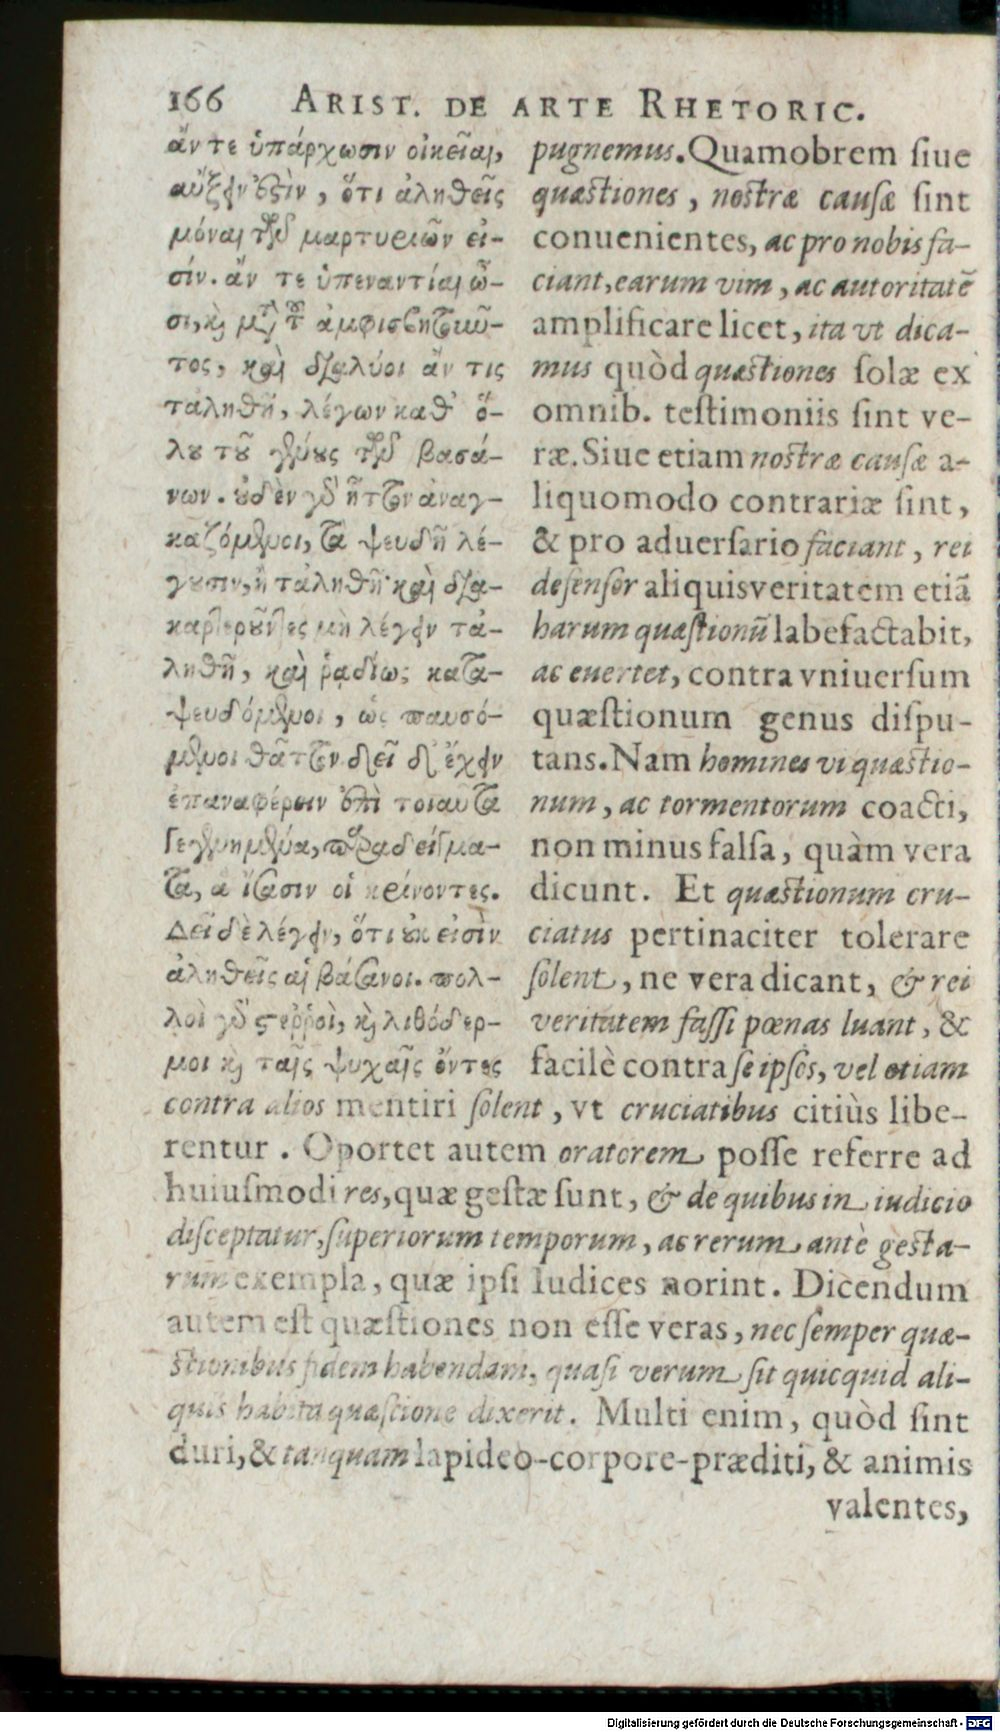 166 ARIST. DE ARTE RHETORIC.
ἄν τε ὑπάρχωσιν οἰκεῖαι,
αὔξειν ἐστὶν, ὅτι ἀληθεῖς
μόναι τῶν μαρτυριῶν εἰ-
σίν. ἄν τε ὑπεναντίαι ὦ-
σι, καὶ μετὰ τοῦ ἀμφισβητοῦν-
τος, καὶ διαλύοι ἄν τις
τἀληθῆ, λέγων καθ' ὅ-
λου τοῦ γένους τῶν βασά-
νων. οὐδὲν γὰρ ἧττον ἀναγ-
καζόμενοι, τὰ ψευδῆ λέ-
γουσιν, ἢ τἀληθῆ· καὶ δια-
καρτεροῦντες μὴ λέγειν τἀ-
ληθῆ, καὶ ῥαδίως κατα-
ψευδόμενοι, ὡς παυσό-
μενοι θᾶττον. δεῖ δ' ἔχειν
ἐπαναφέρειν ἐπὶ τοιαῦτα
γεγενημένα, παραδείγμα-
τα, ἃ ἴσασιν οἱ κρίνοντες.
Δεῖ δὲ λέγειν, ὅτι οὐκ εἰσὶν
ἀληθεῖς αἱ βάσανοι. πολ-
λοὶ γὰρ στερροὶ, καὶ λιθόδερ-
μοι καὶ ταῖς ψυχαῖς ὄντες
pugnemus. Quamobrem siue
quæstiones, nostræ causæ sint
conuenientes, ac pro nobis fa-
ciant, earum vim, ac autoritatē
amplificare licet, ita vt dica-
mus quòd quæstiones solæ ex
omnib. testimoniis sint ve-
ræ. Siue etiam nostræ causæ a-
liquomodo contrariæ sint,
& pro aduersario faciant, rei
defensor aliquis veritatem etiā
harum quæstionū labefactabit,
ac euertet, contra vniuersum
quæstionum genus dispu-
tans. Nam homines vi quæstio-
num, ac tormentorum coacti,
non minus falsa, quàm vera
dicunt. Et quæstionum cru-
ciatus pertinaciter tolerare
solent, ne vera dicant, & rei
veritatem fassi pœnas luant, &
facilè contra se ipsos, vel etiam
contra alios mentiri solent, vt cruciatibus citiùs libe-
rentur. Oportet autem oratorem posse referre ad
huiusmodi res, quæ gestæ sunt, & de quibus in iudicio
disceptatur, superiorum temporum, ac rerum antè gesta-
rum exempla, quæ ipsi Iudices norint. Dicendum
autem est quæstiones non esse veras, nec semper quæ-
stionibus fidem habendam, quasi verum sit quicquid ali-
quis habita quæstione dixerit. Multi enim, quòd sint
duri, & tanquam lapideo-corpore-præditi, & animis
valentes,
Digitalisierung gefördert durch die Deutsche Forschungsgemeinschaft - DFG